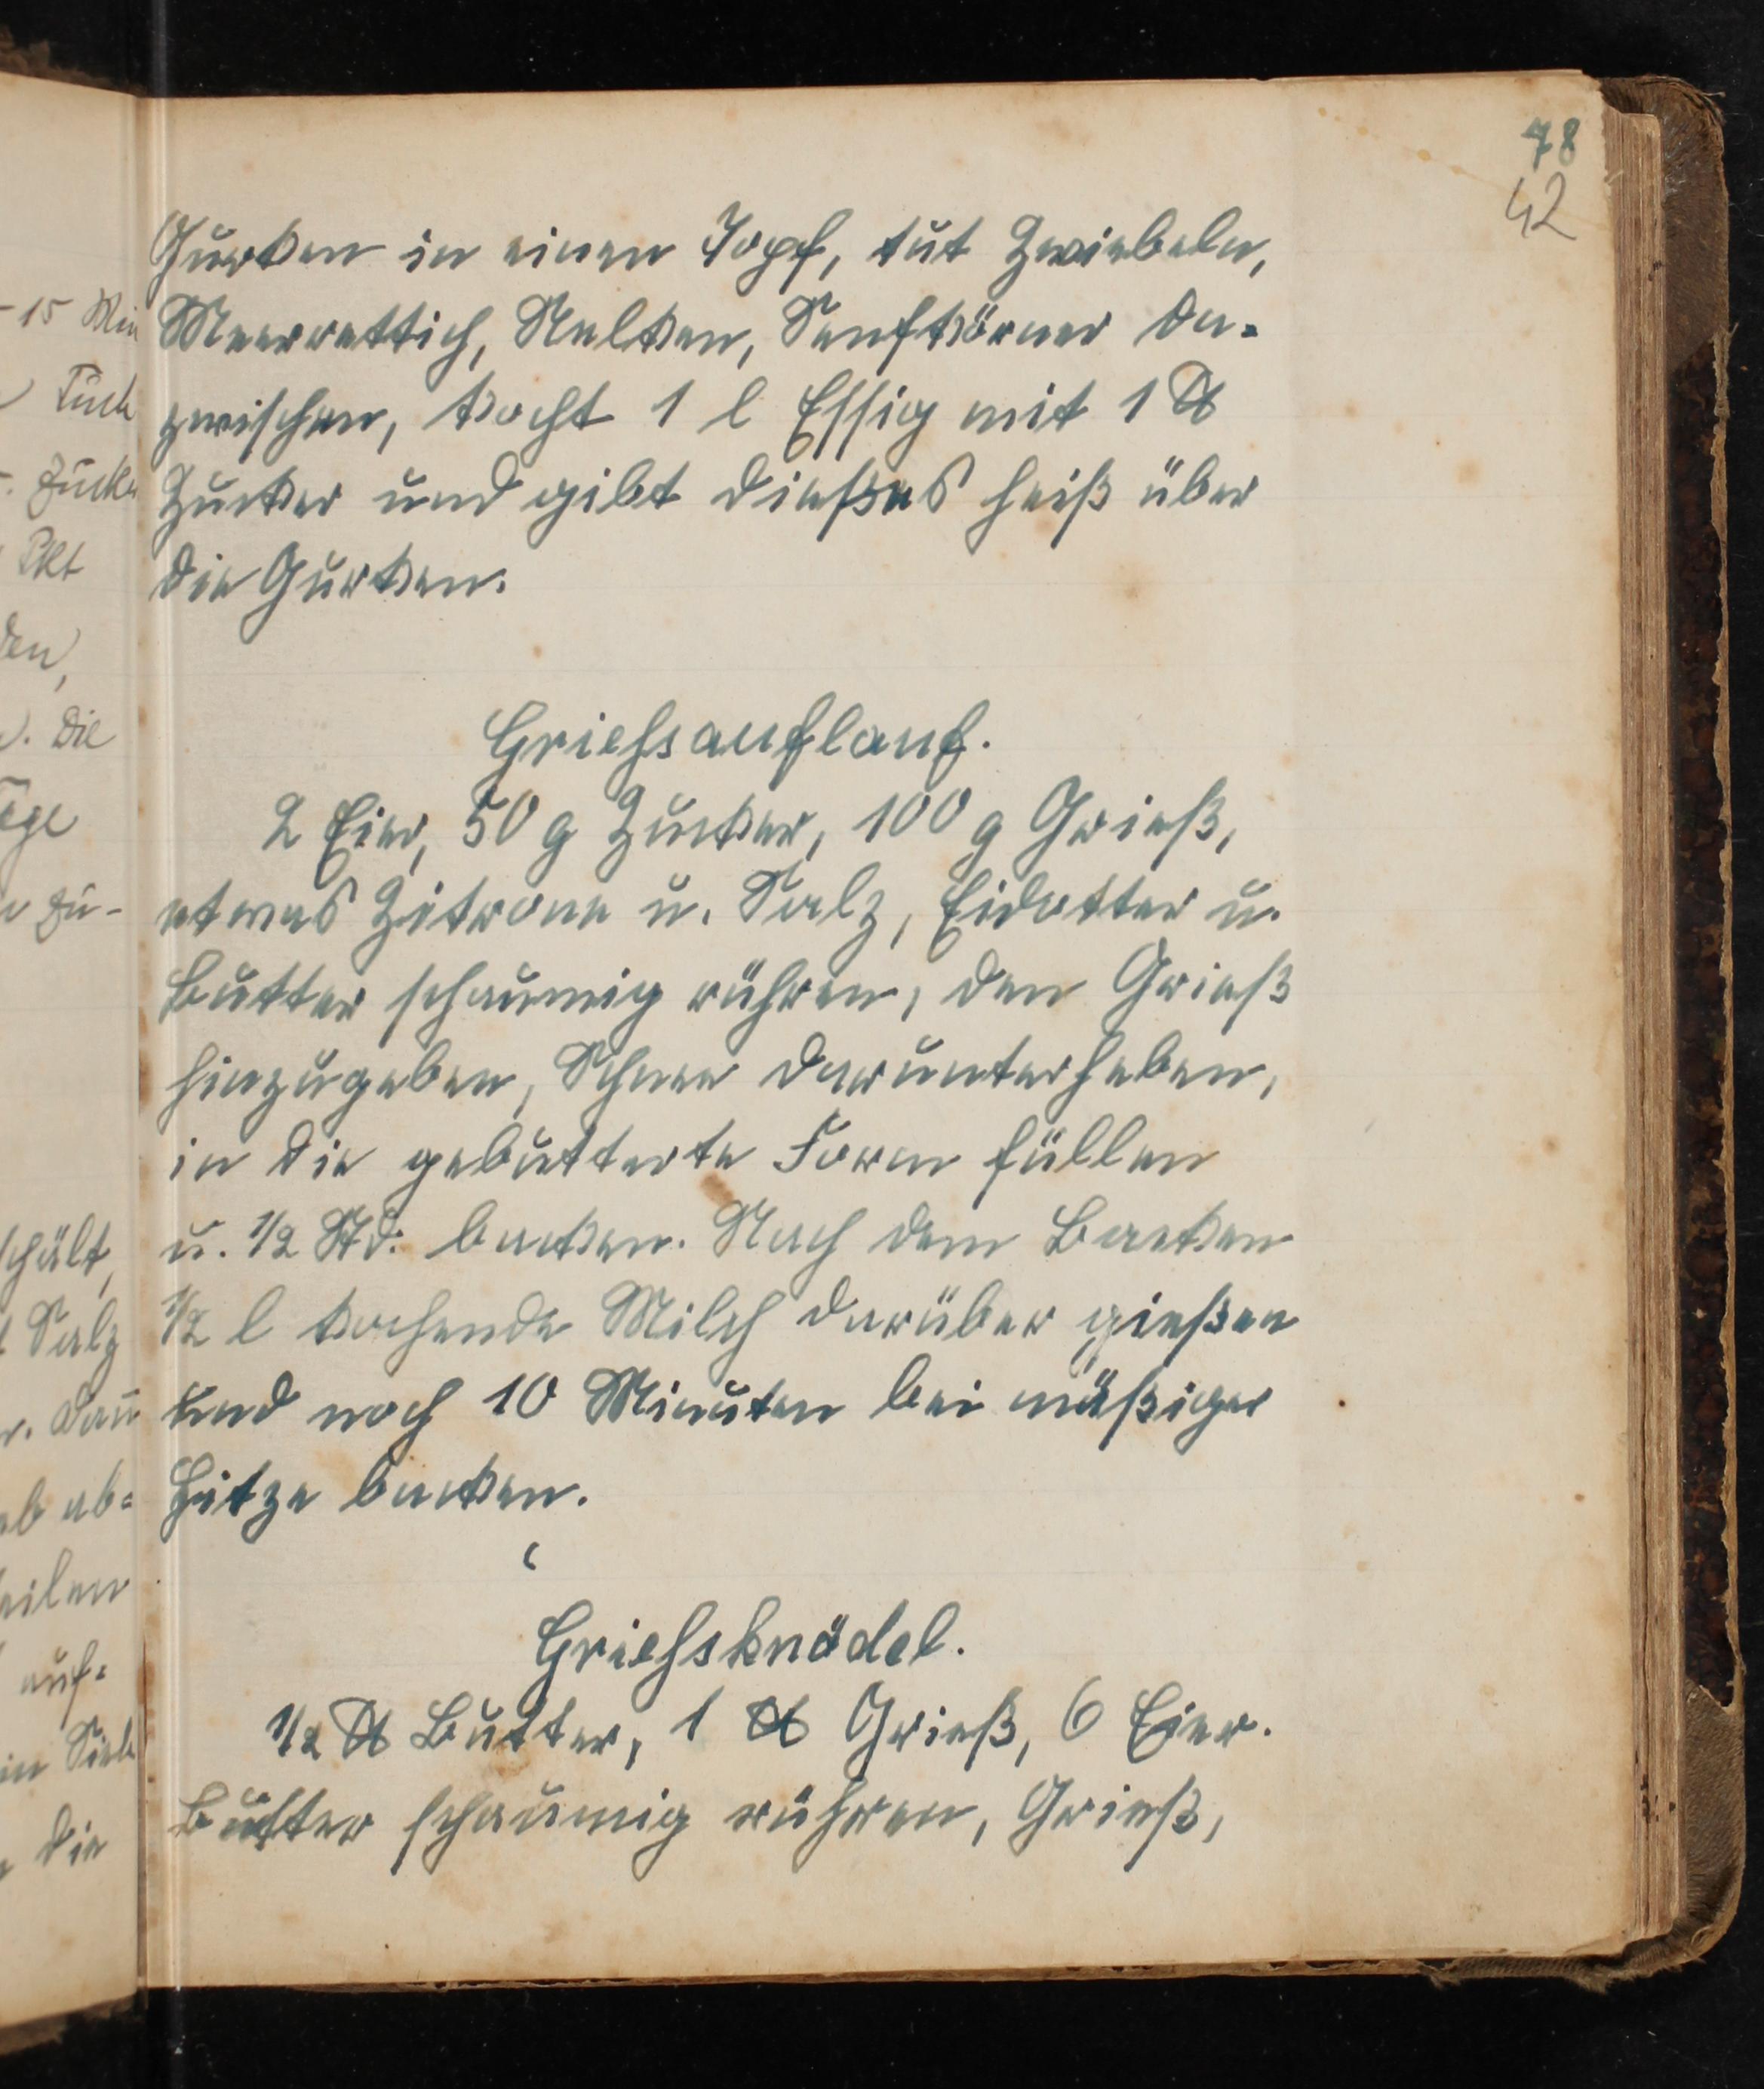 78
42
Gurken in einen Topf, tut Zwiebeln,
Meerrettich, Nelken, Senfkörner da-
zwischen, kocht 1 l Essig mit 1 ℔
Zucker und gibt dießes heiß über
die Gurken.
Griehsauflauf.
2 Eier, 50 g Zucker, 100 g Grieß,
etwas Zitrone u. Salz, Eidotter u.
Butter schaumig rühren, den Grieß
hinzugeben, Schnee darunterheben,
in die gebutterte Form füllen
u. 1/2 Std. backen. Nach dem Backen
1/2 l kochende Milch darüber gießen
und noch 10 Minuten bei mäßiger
Hitze backen.
Griehsknödel.
1/2 ℔ Butter, 1 ℔ Grieß, 6 Eier.
Butter schaumig rühren, Grieß,